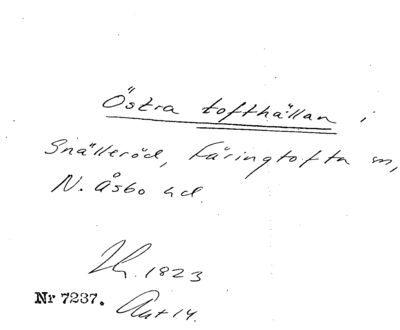 Östra tofthällan i
Snälleröd, Färingtofta sn,
N. Åsbo hd.
1823
Nr 7237. Aut 14.